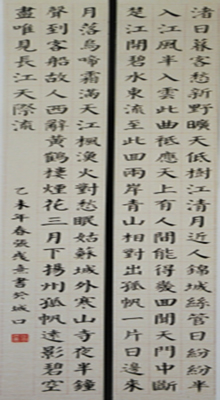 渚日暮客愁新野曠天低樹江清月近人錦城絲管日紛紛半
入江風半入雲此曲祗應天上有人間能得幾回聞天門中斷
楚江開碧水東流至此回兩岸青山相對出孤帆一片日邊來
月落烏啼霜滿天江楓漁火對愁眠姑蘇城外寒山寺夜半鐘
聲到客船故人西辭黃鶴樓煙花三月下揚州孤帆遠影碧空
盡唯見長江天際流
乙未年春張意書於城口